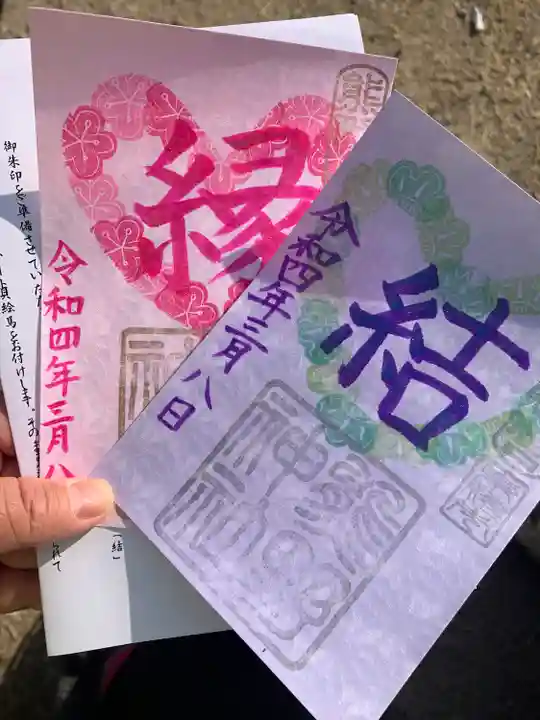 縁
令和四年三月八
熊
結
令和四年三月八日
神社
御朱印を準備させていた
絵馬をお付けします。その
「結」